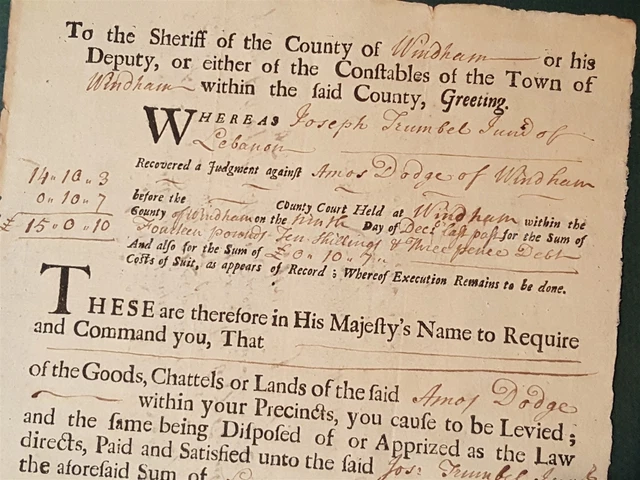 To the Sheriff of the County of Windham or his
Deputy, or either of the Conſtables of the Town of
Windham within the ſaid County, Greeting.
WHEREAS Joseph Trumbel Junr of
Lebanon
Recovered a Judgment againſt Amos Dodge of Windham
14 " 10 " 3
0 " 10 " 7
£ 15 " 0 " 10
before the County Court Held at Windham within the
County of Windham on the Ninth Day of Decr last past for the Sum of
Fourteen pounds Ten Shillings & Three pence Debt
And alſo for the Sum of £ 0 " 10 " 7 "
Coſts of Suit, as appears of Record ; Whereof Execution Remains to be done.
THESE are therefore in His Majeſty's Name to Require
and Command you, That
of the Goods, Chattels or Lands of the ſaid Amos Dodge
within your Precincts, you cauſe to be Levied ;
and the ſame being Diſpoſed of or Apprized as the Law
directs, Paid and Satisfied unto the ſaid Jos: Trumbel
the aforeſaid Sum of